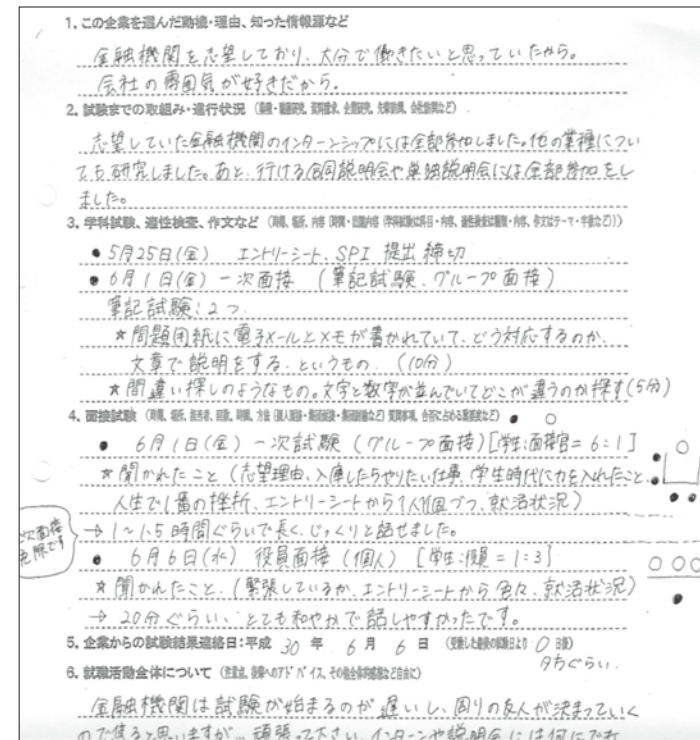 1. この企業を選んだ動機・理由、知った情報源など
金融機関を志望しており、大分で働きたいと思っていたから。
会社の雰囲気が好きだから。
2. 試験までの取組み・進行状況
志望していた金融機関のインターンシップには全部参加しました。他の業種につい
ても研究しました。あと、行ける合同説明会や単独説明会には全部参加をし
ました。
3. 学科試験、適性検査、作文など
● 5月25日(金) エントリーシート、SPI 提出締切
● 6月1日(金) 一次面接 (筆記試験、グループ面接)
筆記試験:2つ
★問題用紙に電子メールとメモが書かれていて、どう対応するのか、
文章で説明をする、というもの。(10分)
★間違い探しのようなもの。文字と数字が並んでいてどこが違うのか探す(5分)
4. 面接試験
● 6月1日(金) 一次試験 (グループ面接)[学生:面接官=6:1]
★聞かれたこと(志望理由、入庫したらやりたい仕事、学生時代に力を入れたこと、
人生で1番の挫折、エントリーシートから1人1個づつ、就活状況)
→ 1~1.5時間ぐらいで長く、じっくりと話せました。
次面接
● 6月6日(水) 役員面接 (個人) [学生:役員=1:3]
★聞かれたこと、(緊張しているか、エントリーシートから色々、就活状況)
→ 20分ぐらい、とても和やかで話しやすかったです。
5. 企業からの試験結果連絡日:平成 30 年 6 月 6 日 (受験した最後の試験日より 0 日後)
夕方ぐらい。
6. 就職活動全体について
金融機関は試験が始まるのが遅いし、周りの友人が決まっていく
ので焦ると思いますが… 頑張って下さい。インターンや説明会には